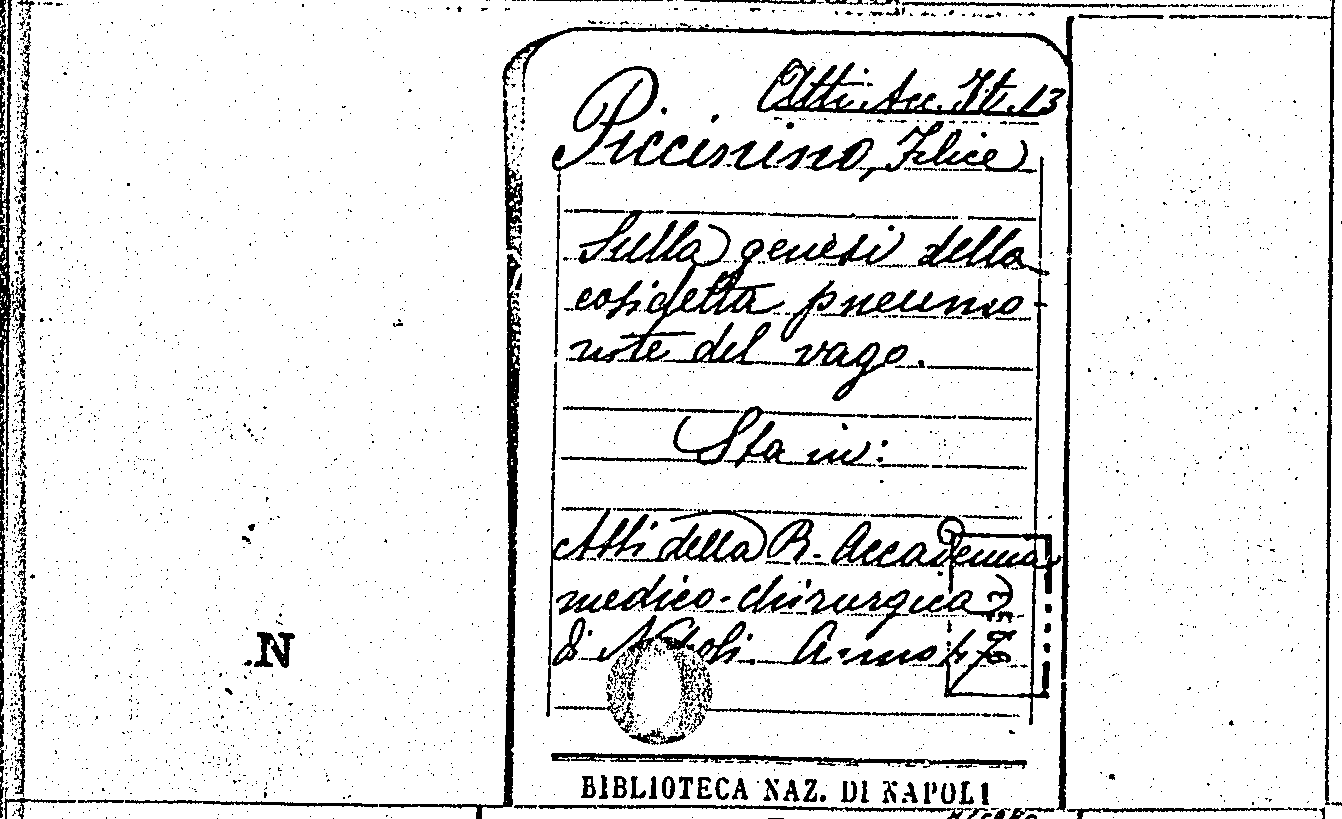 Atti. Acc. It. 13
Piccinino, Felice
Sulla genesi della
cosidetta pneumo-
nite del vago.
Sta in:
Atti della R. Accademia
medico-chirurgica
di Napoli. Anno
N
BIBLIOTECA NAZ. DI NAPOLI